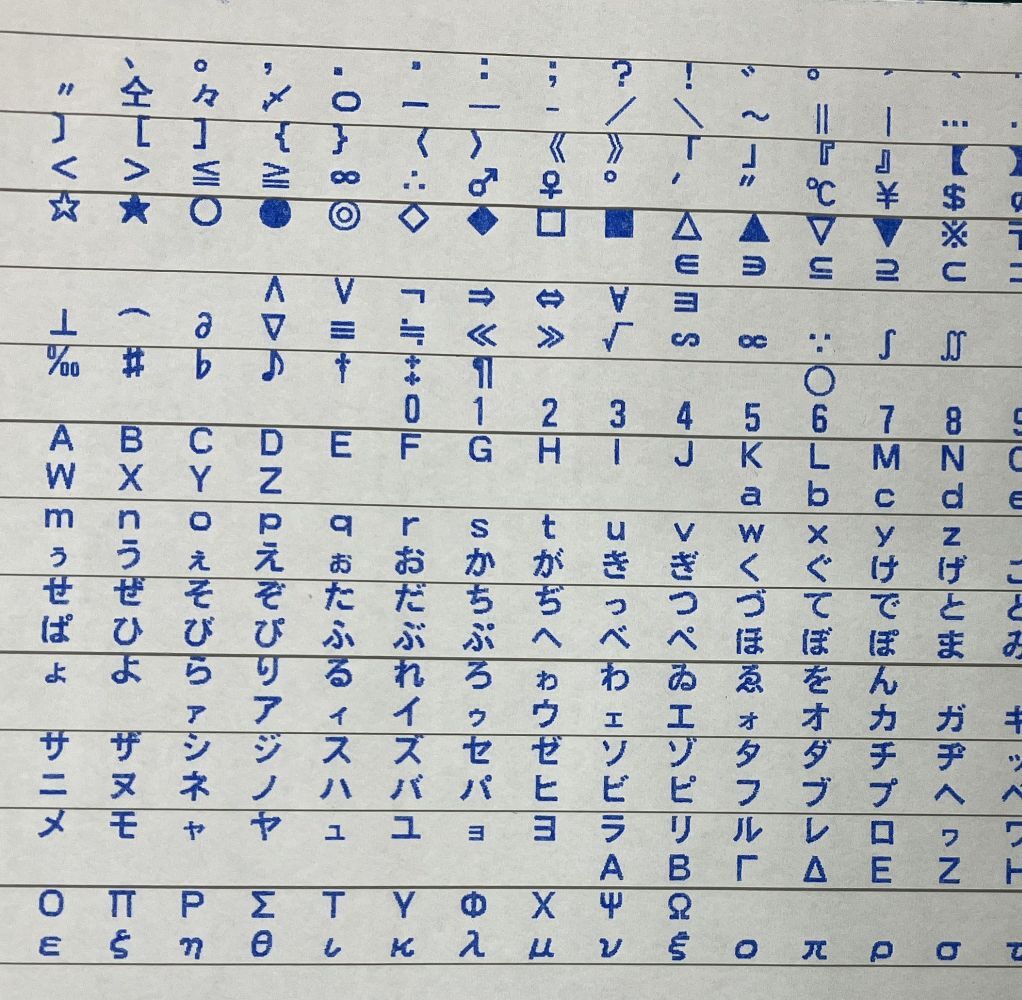 、 。 ， ． ・ ： ； ？ ！ ゛ ゜ ´ ｀
〃 仝 々 〆 〇 ー ― ‐ ／ ＼ ～ ∥ ｜ …
〕 ［ ］ ｛ ｝ 〈 〉 《 》 「 」 『 』 【
＜ ＞ ≦ ≧ ∞ ∴ ♂ ♀ ° ′ ″ ℃ ￥ ＄
☆ ★ ○ ● ◎ ◇ ◆ □ ■ △ ▲ ▽ ▼ ※ 〒
∈ ∋ ⊆ ⊇ ⊂ ⊃
∧ ∨ ￢ ⇒ ⇔ ∀ ∃
⊥ ⌒ ∂ ∇ ≡ ≒ ≪ ≫ √ ∽ ∝ ∵ ∫ ∬
‰ ♯ ♭ ♪ † ‡ ¶ ◯
0 1 2 3 4 5 6 7 8 9
A B C D E F G H I J K L M N O
W X Y Z a b c d e
m n o p q r s t u v w x y z
ぅ う ぇ え ぉ お か が き ぎ く ぐ け げ こ
せ ぜ そ ぞ た だ ち ぢ っ つ づ て で と ど
ぱ ひ び ぴ ふ ぶ ぷ へ べ ぺ ほ ぼ ぽ ま み
ょ よ ら り る れ ろ ゎ わ ゐ ゑ を ん
ァ ア ィ イ ゥ ウ ェ エ ォ オ カ ガ キ
サ ザ シ ジ ス ズ セ ゼ ソ ゾ タ ダ チ ヂ ッ
ニ ヌ ネ ノ ハ バ パ ヒ ビ ピ フ ブ プ ヘ ベ
メ モ ャ ヤ ュ ユ ョ ヨ ラ リ ル レ ロ ヮ ワ
Α Β Γ Δ Ε Ζ Η
Ο Π Ρ Σ Τ Υ Φ Χ Ψ Ω
ε ζ η θ ι κ λ μ ν ξ ο π ρ σ τ